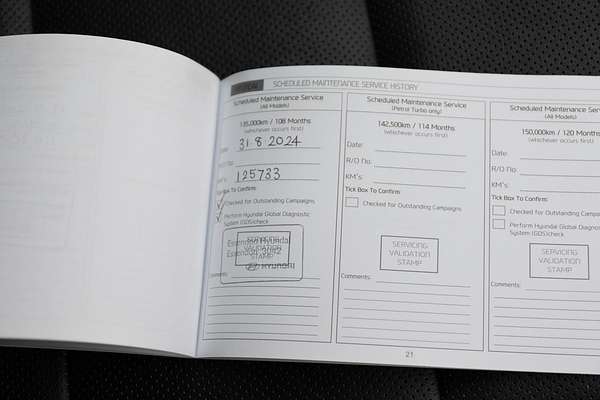 SCHEDULED MAINTENANCE SERVICE HISTORY
Scheduled Maintenance Service
(All Models)
135,000km / 108 Months
(whichever occurs first)
31 8 2024
125733
Box To Confirm:
Checked for Outstanding Campaigns
Perform Hyundai Global Diagnostic
System (GDS)check
SERVICING
VALIDATION
STAMP
Essendon Hyundai
Essendon
HYUNDAI
Comments:
Scheduled Maintenance Service
(Petrol Turbo only)
142,500km / 114 Months
(whichever occurs first)
Date:
R/O No.
KM's:
Tick Box To Confirm:
Checked for Outstanding Campaigns
SERVICING
VALIDATION
STAMP
Comments:
Scheduled Maintenance Service
(All Models)
150,000km / 120 Months
(whichever occurs first)
Date:
R/O No.
KM's:
Tick Box To Confirm:
Checked for Outstanding Campaigns
Perform Hyundai Global Diagnostic
System (GDS)check
SERVICING
VALIDATION
STAMP
Comments:
21